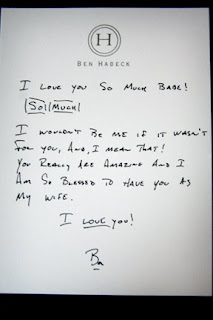 H
BEN HABECK
I LOVE YOU SO MUCH BABE!
|SO| |MUCH|
I WOULDN'T BE ME IF IT WASN'T
FOR YOU, AND, I MEAN THAT!
YOU REALLY ARE AMAZING AND I
AM SO BLESSED TO HAVE YOU AS
MY WIFE.
I LOVE YOU!
Bn